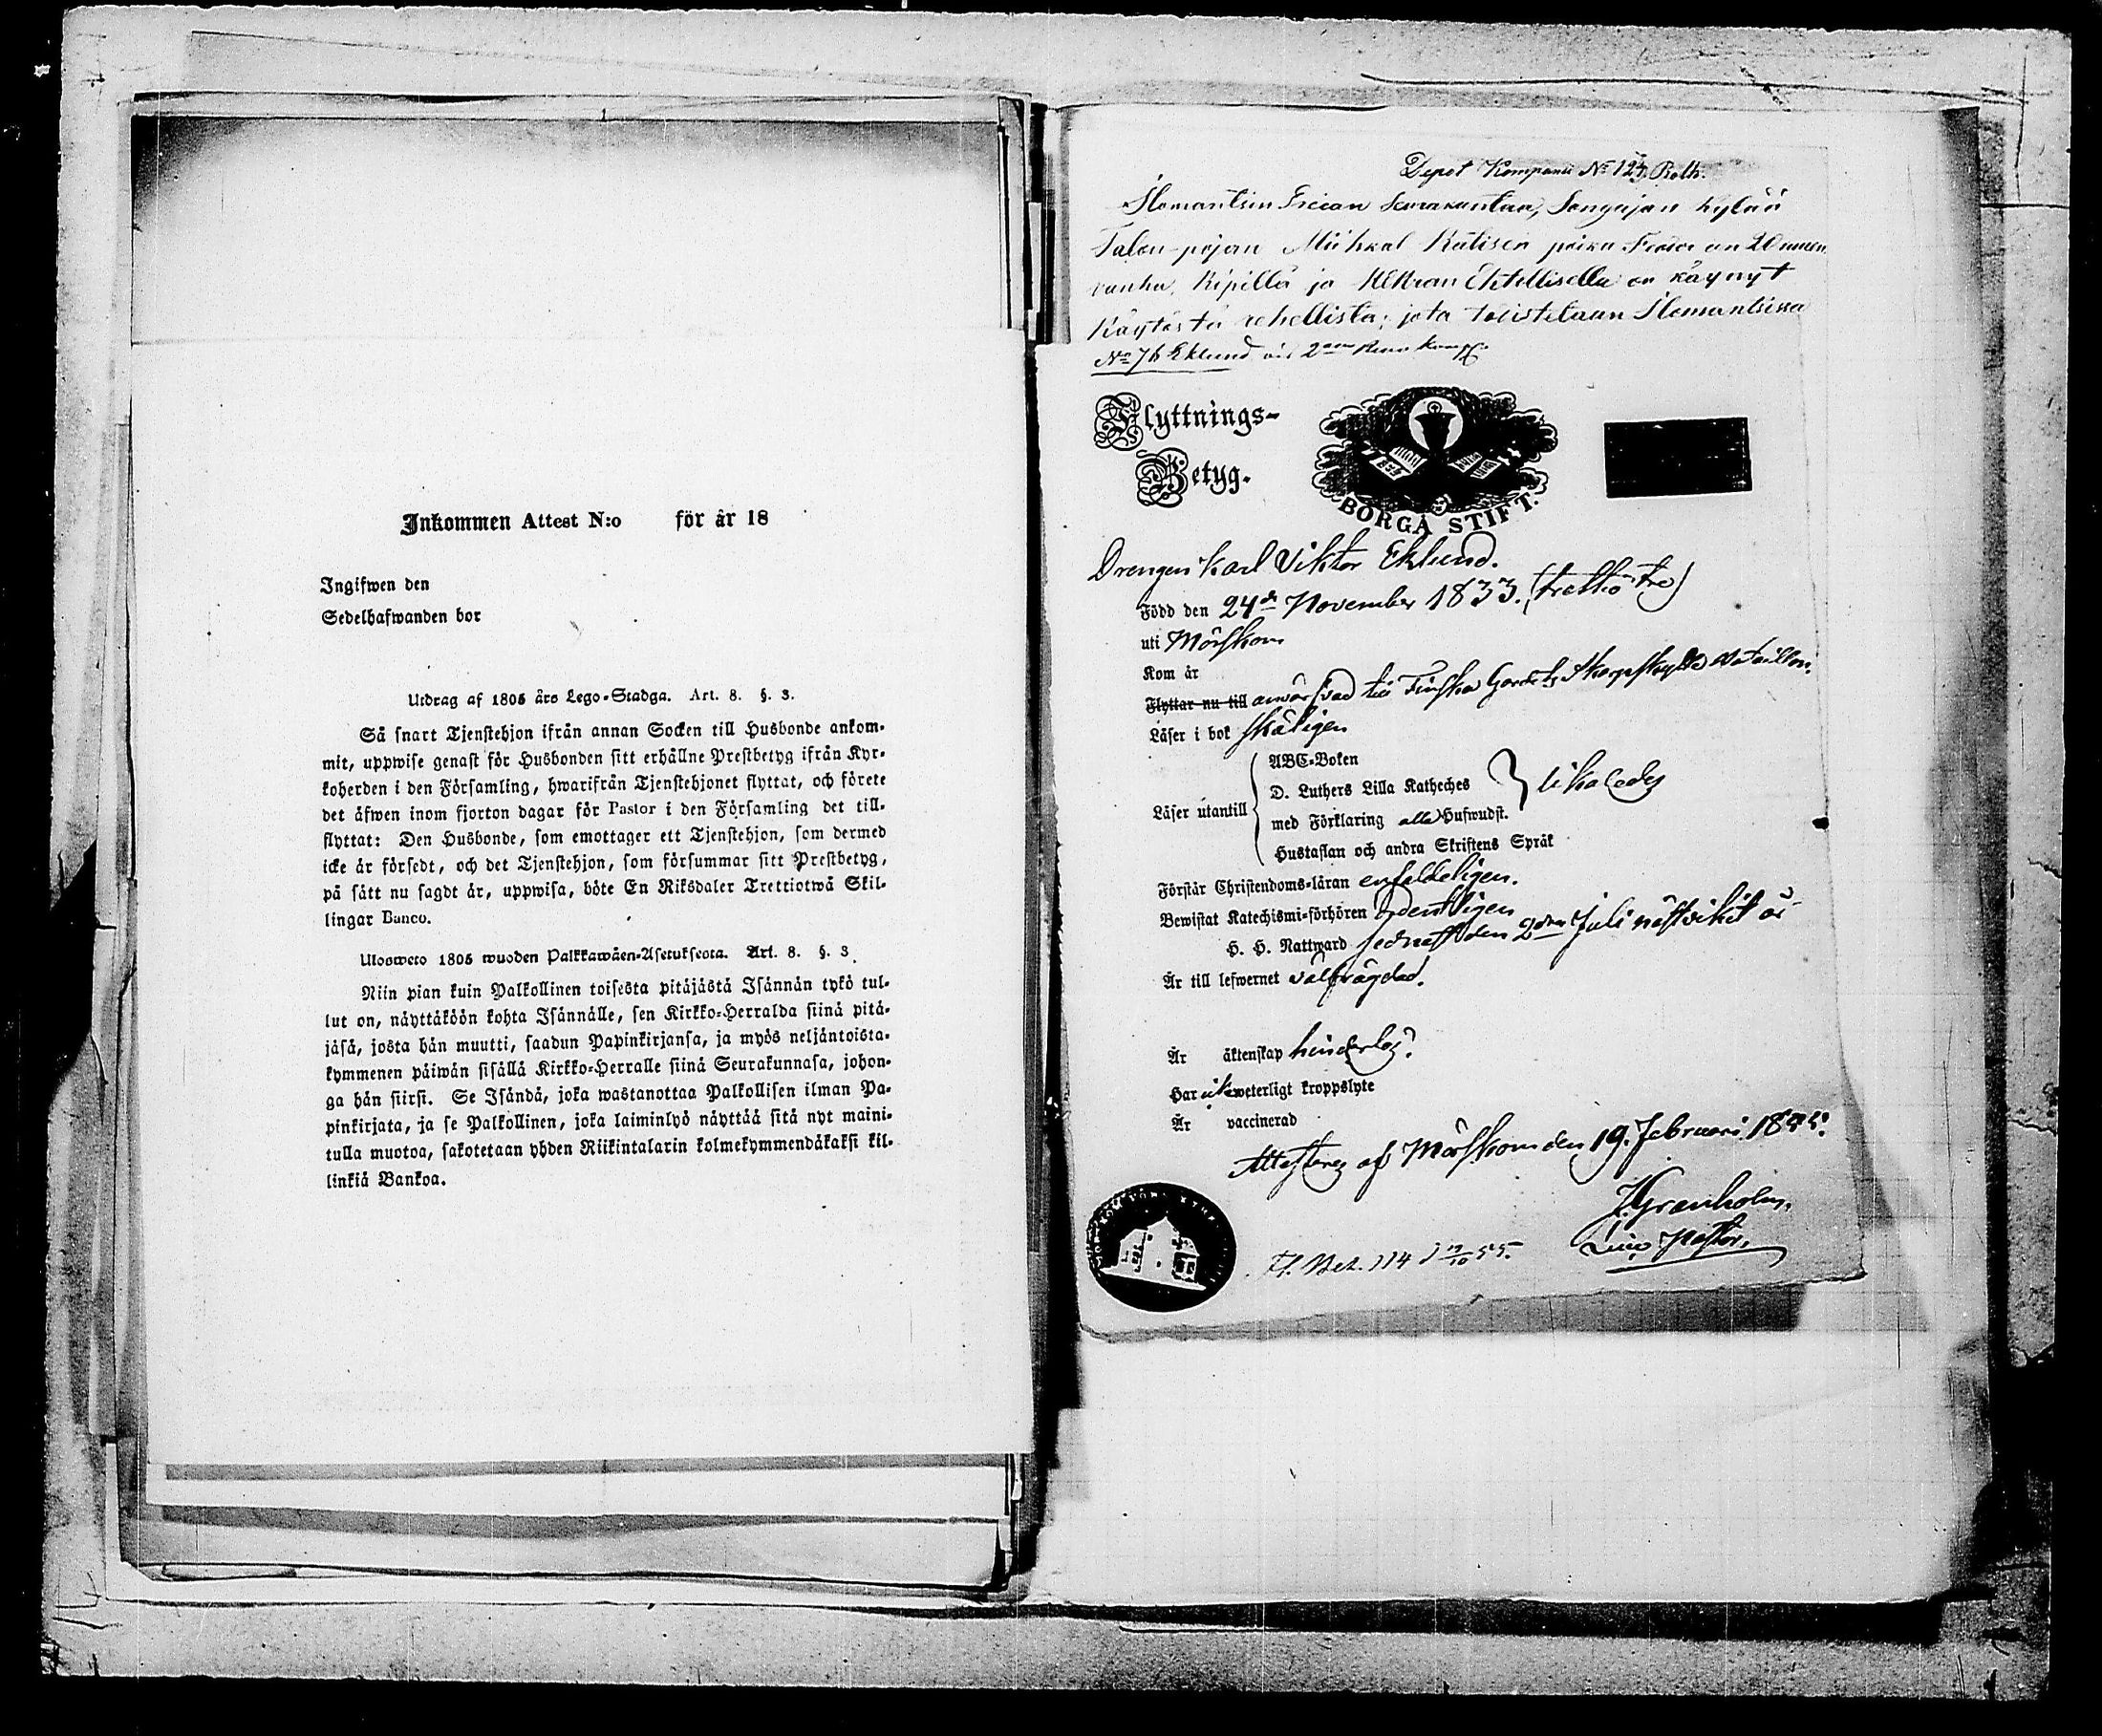 Inkommen Attest N:o för år 18
Ingifwen den
Sedelhafwanden bor
Utdrag af 1805 års Lego-Stadga. Art. 8. §. 3.
Så snart Tjenstehjon ifrån annan Socken till Husbonde ankom-
mit, uppwise genast för Husbonden sitt erhållne Prestbetyg ifrån Kyr-
koherden i den Församling, hwarifrån Tjenstehjonet flyttat, och förete
det äfwen inom fjorton dagar för Pastor i den Församling det till-
flyttat: Den Husbonde, som emottager ett Tjenstehjon, som dermed
icke är försedt, och det Tjenstehjon, som försummar sitt Prestbetyg,
på sätt nu sagdt är, uppwisa, böte En Riksdaler Trettiotwå Skil-
lingar Banco.
Ulosweto 1805 wuoden Palkkawäen-Asetuksesta. Art. 8. §. 3.
Niin pian kuin Palkollinen toisesta pitäjästä Isännän tykö tul-
lut on, näyttäköön kohta Isännälle, sen Kirkko-Herralda siinä pitä-
jäsä, josta hän muutti, saadun Papinkirjansa, ja myös neljäntoista-
kymmenen päiwän sisällä Kirkko-Herralle siinä Seurakunnasa, johon-
ga hän siirsi. Se Isändä, joka wastanottaa Palkollisen ilman Pa-
pinkirjata, ja se Palkollinen, joka laiminlyö näyttää sitä nyt maini-
tulla muotoa, sakotetaan yhden Riikintalarin kolmekymmendäkaksi kil-
linkiä Bankoa.
Depot Kompani No 124 Roth.
Ilomantsin Grecan Seurakuntaa, Songajan kylää
Talon-pojan Miihkal Ratisen poika on 20
vanha, Ripillä ja HEkran Ehtellisella on käynyt
Käytöstä rehellistä; jota todistetaan Ilomantsissa
No 76 Eklund vid 2 Komp.
Flyttnings-
Betyg.
BORGÅ STIFT.
Drengen Karl Viktor Eklund.
Född den 24de November 1833. (trettio tre)
uti Mörskom
Kom år
Flyttar nu till anvärfvad till Finska Gardets Skarpskytte Bataillon.
Läser i bok skäligen
ABC-Boken
D. Luthers Lilla Katheches } likaledes
Läser utantill
med Förklaring alla Hufwudst.
Hustaflan och andra Skriftens Språk
Förstår Christendoms-läran enfaldeligen.
Bewistat Katechismi-förhören ordentligen
H. H. Nattward sednast den 2dra Juli nästvikit år
Är till lefwernet välfrägdad.
Är äktenskap hinderlös.
Har icke weterligt kroppslyte
Är vaccinerad
Attesteras af Mörskom den 19. Februari 1855.
J. Granholm,
Pastor.
Fl. Bet. 114 55.